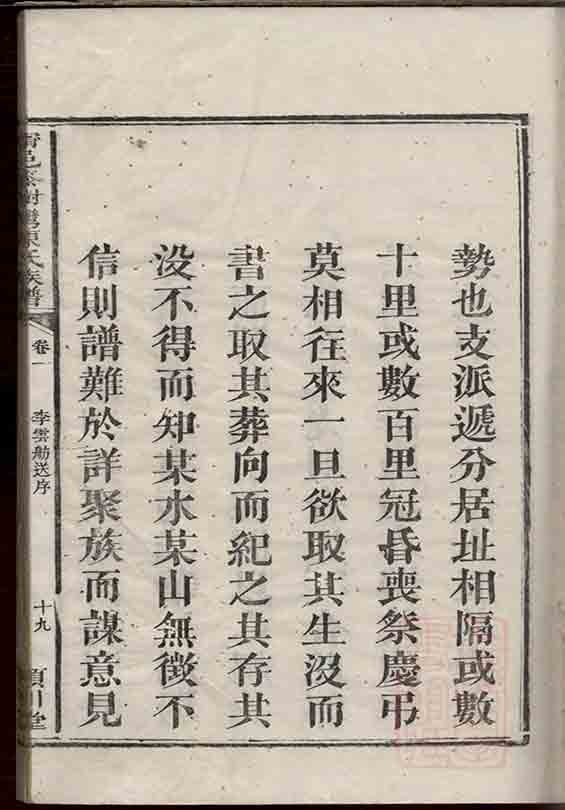 勢也支派遞分居址相隔或數
十里或數百里冠昏喪祭慶弔
莫相徃來一旦欲取其生沒而
書之取其葬向而紀之其存其
没不得而知某水某山無徴不
信則譜難於詳聚族而謀意見
邑
灣陳氏族譜
卷一
李雲舫送序
十九
潁川堂